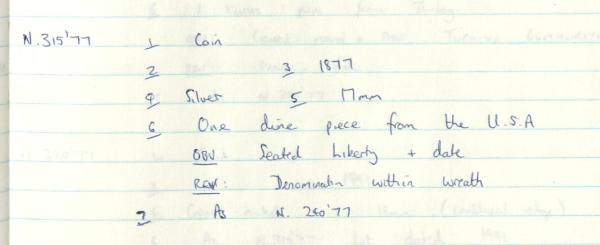 N.315'77 1 Coin
2 3 1877
4 Silver 5 17mm
6 One dime piece from the U.S.A
OBV: Seated Liberty + date
REV: Denomination within wreath
7 As N. 280'77